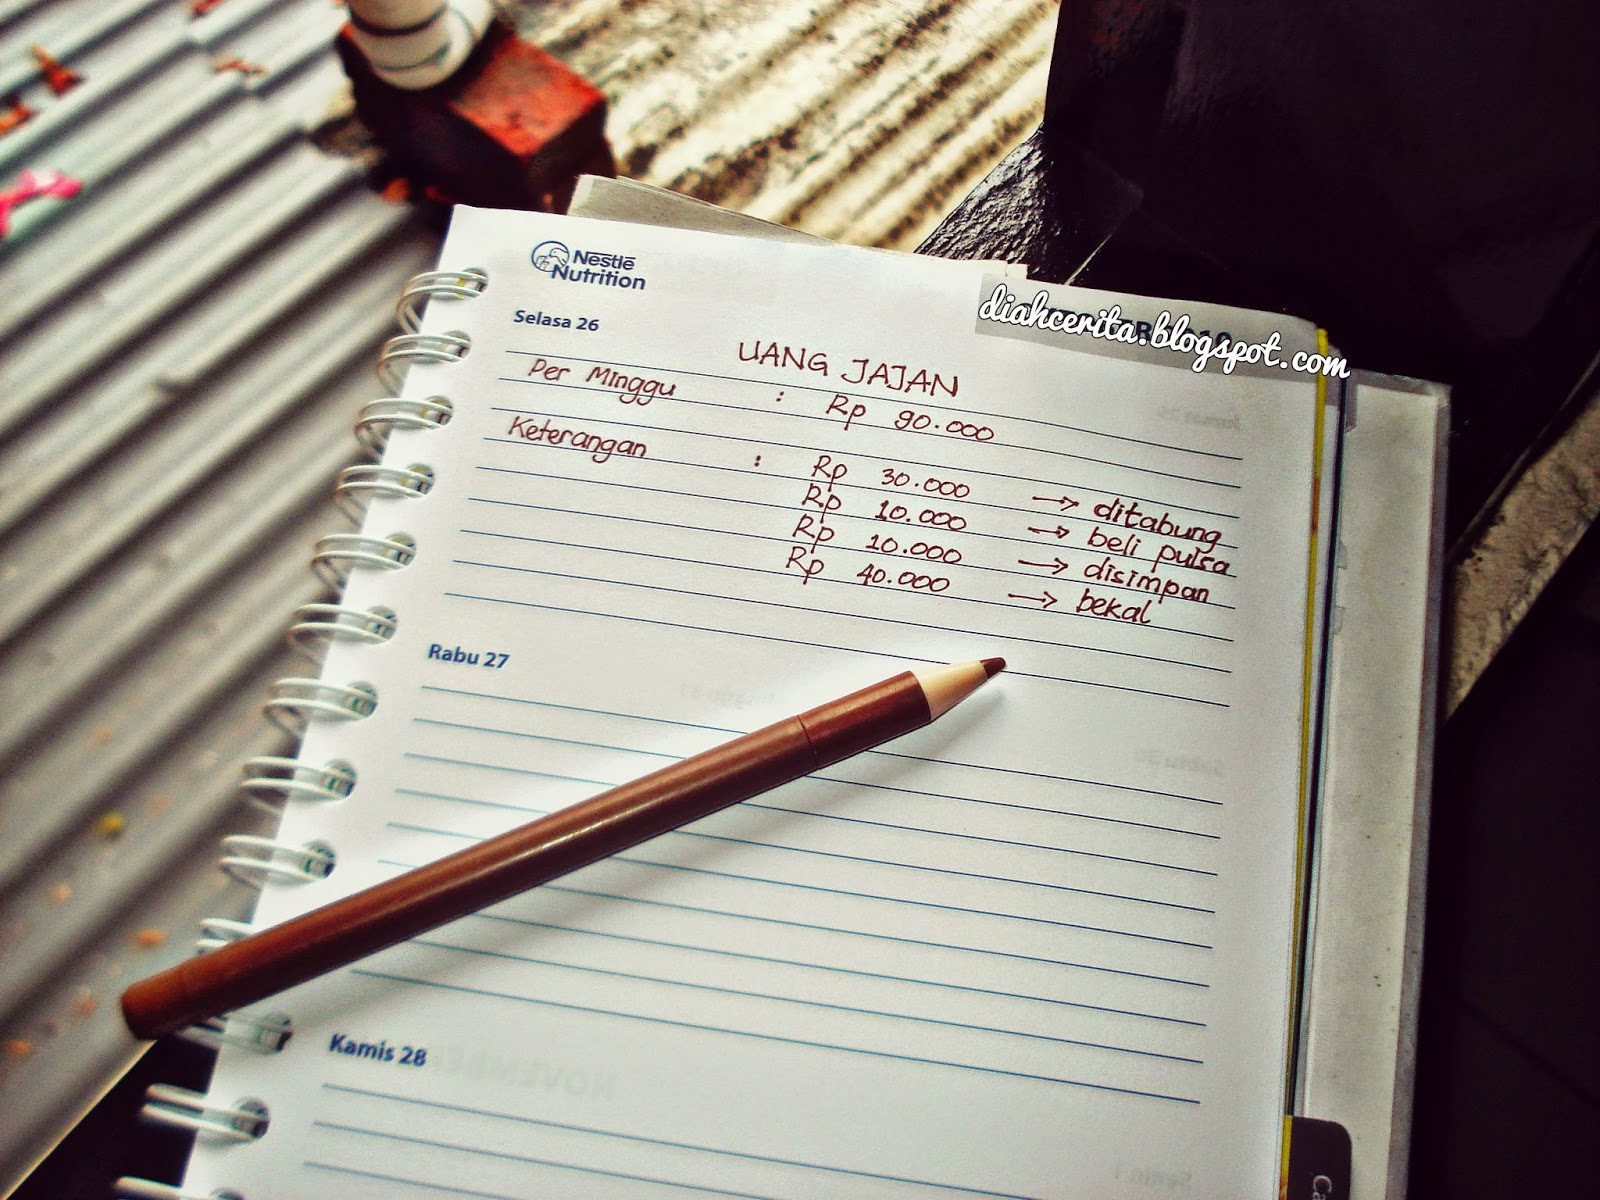 Nestlē
Nutrition
diahcerita.blogspot.com
Selasa 26
UANG JAJAN
Per Minggu : Rp 90.000
Keterangan : Rp 30.000 → ditabung
Rp 10.000 → beli pulsa
Rp 10.000 → disimpan
Rp 40.000 → bekal
Rabu 27
Kamis 28